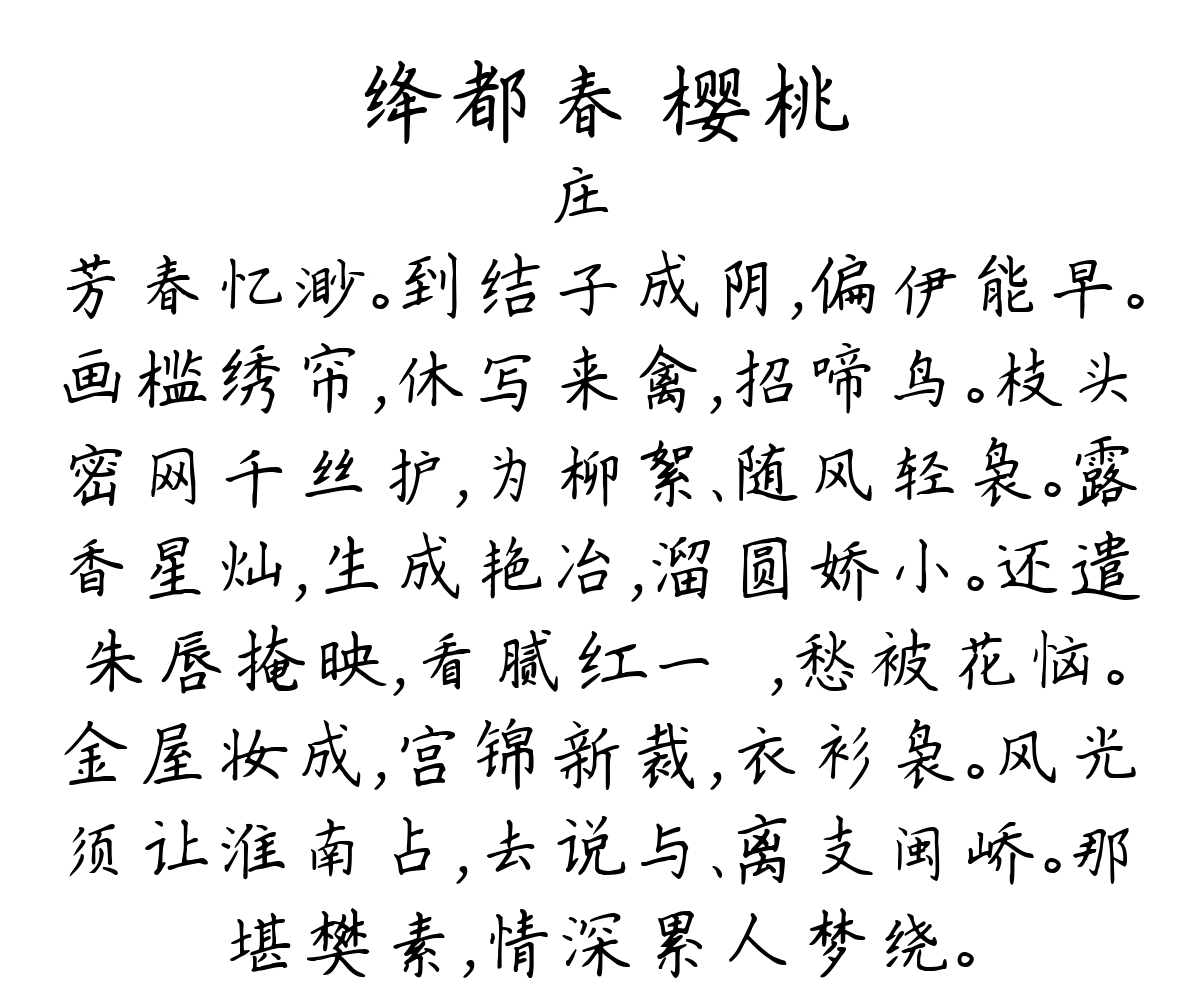 绛都春 樱桃
庄
芳春忆渺。到结子成阴,偏伊能早。
画槛绣帘,休写来禽,招啼鸟。枝头
密网千丝护,为柳絮、随风轻袅。露
香星灿,生成艳冶,溜圆娇小。还遣
朱唇掩映,看腻红一 ,愁被花恼。
金屋妆成,宫锦新裁,衣衫袅。风光
须让淮南占,去说与、离支闽峤。那
堪樊素,情深累人梦绕。